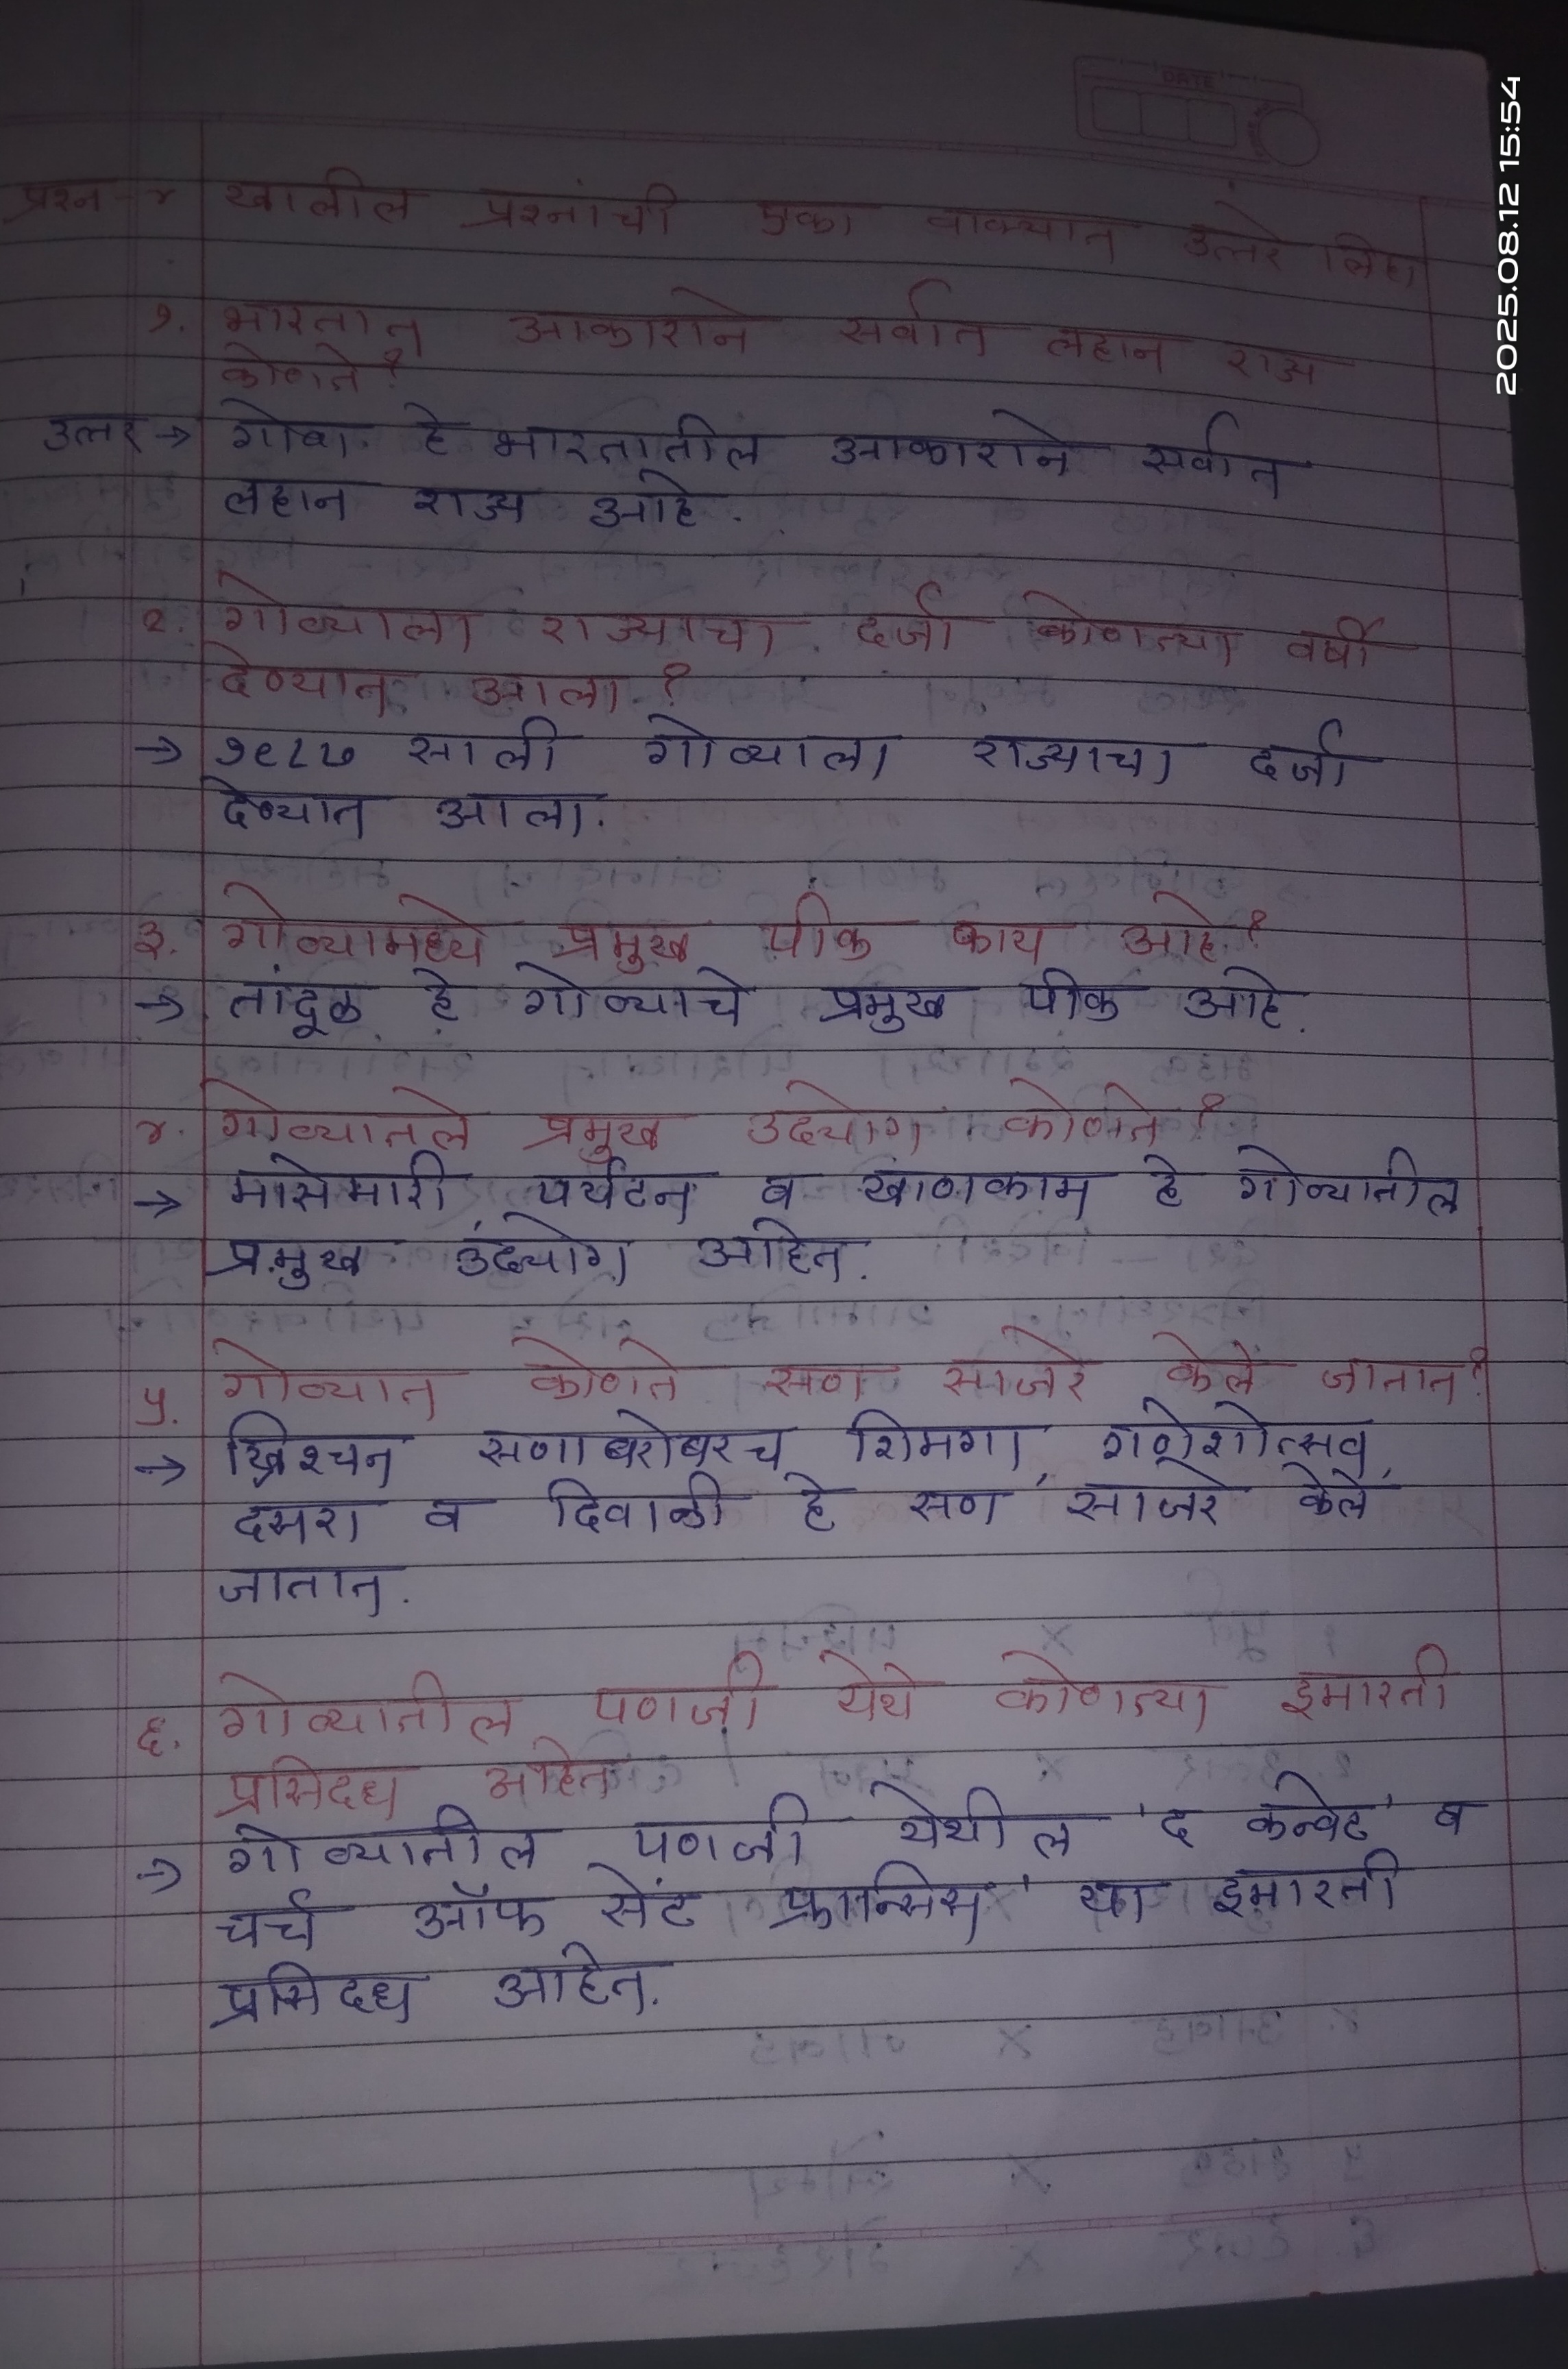 DATE
2025.08.12 15:54
प्रश्न-४ खालील प्रश्नांची एका वाक्यात उत्तरे लिहा
१. भारतात आकाराने सर्वात लहान राज्य
कोणते?
उत्तर → गोवा हे भारतातील आकाराने सर्वात
लहान राज्य आहे.
२. गोव्याला राज्याचा दर्जा कोणत्या वर्षी
देण्यात आला?
→ १९८७ साली गोव्याला राज्याचा दर्जा
देण्यात आला.
३. गोव्यामध्ये प्रमुख पीक काय आहे?
→ तांदूळ हे गोव्याचे प्रमुख पीक आहे.
४. गोव्यातले प्रमुख उदयोग कोणते?
→ मासेमारी, पर्यटन व खाणकाम हे गोव्यातील
प्रमुख उदयोग आहेत.
५. गोव्यात कोणते सण साजरे केले जातात?
→ ख्रिश्चन सणाबरोबरच शिमगा, गणेशोत्सव,
दसरा व दिवाळी हे सण साजरे केले
जातात.
६. गोव्यातील पणजी येथे कोणत्या इमारती
प्रसिदध आहेत
→ गोव्यातील पणजी येथील 'द कन्वेंट' व
चर्च ऑफ सेंट फ्रान्सिस' या इमारती
प्रसिदध आहेत.